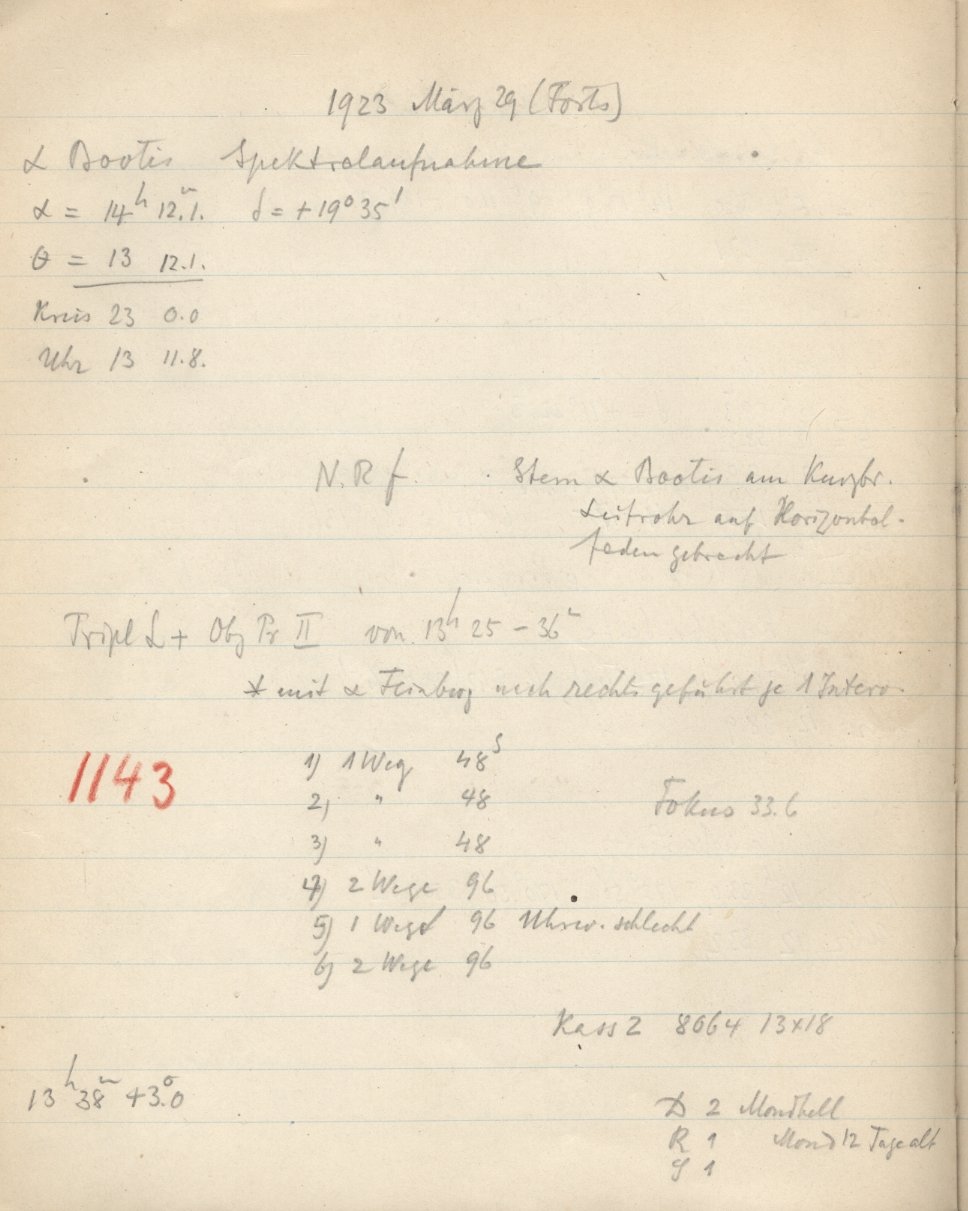 1923 März 29 (Forts)
α Bootis Spektralaufnahme
α = 14ʰ 12ᵐ.1. δ = +19° 35'
θ = 13 12.1.
Kreis 23 0.0
Uhr 13 11.8.
N.R f. Stern α Bootis am Kurzbr.
Leitrohr auf Horizontal-
faden gebracht
Tripl L + Obj Pr II von 13ʰ 25 - 36ᵐ
* mit α Feinbewg nach rechts geführt je 1 Interv.
1143
1) 1 Weg 48ˢ
2) " 48
Fokus 33.6
3) " 48
4) 2 Wege 96
5) 1 Weg 96 Uhrw. schlecht
6) 2 Wege 96
Kass 2 8064 13x18
13ʰ 38ᵐ +3°.0
D 2 Mondhell
R 1 Mond 12 Tage alt
S 1